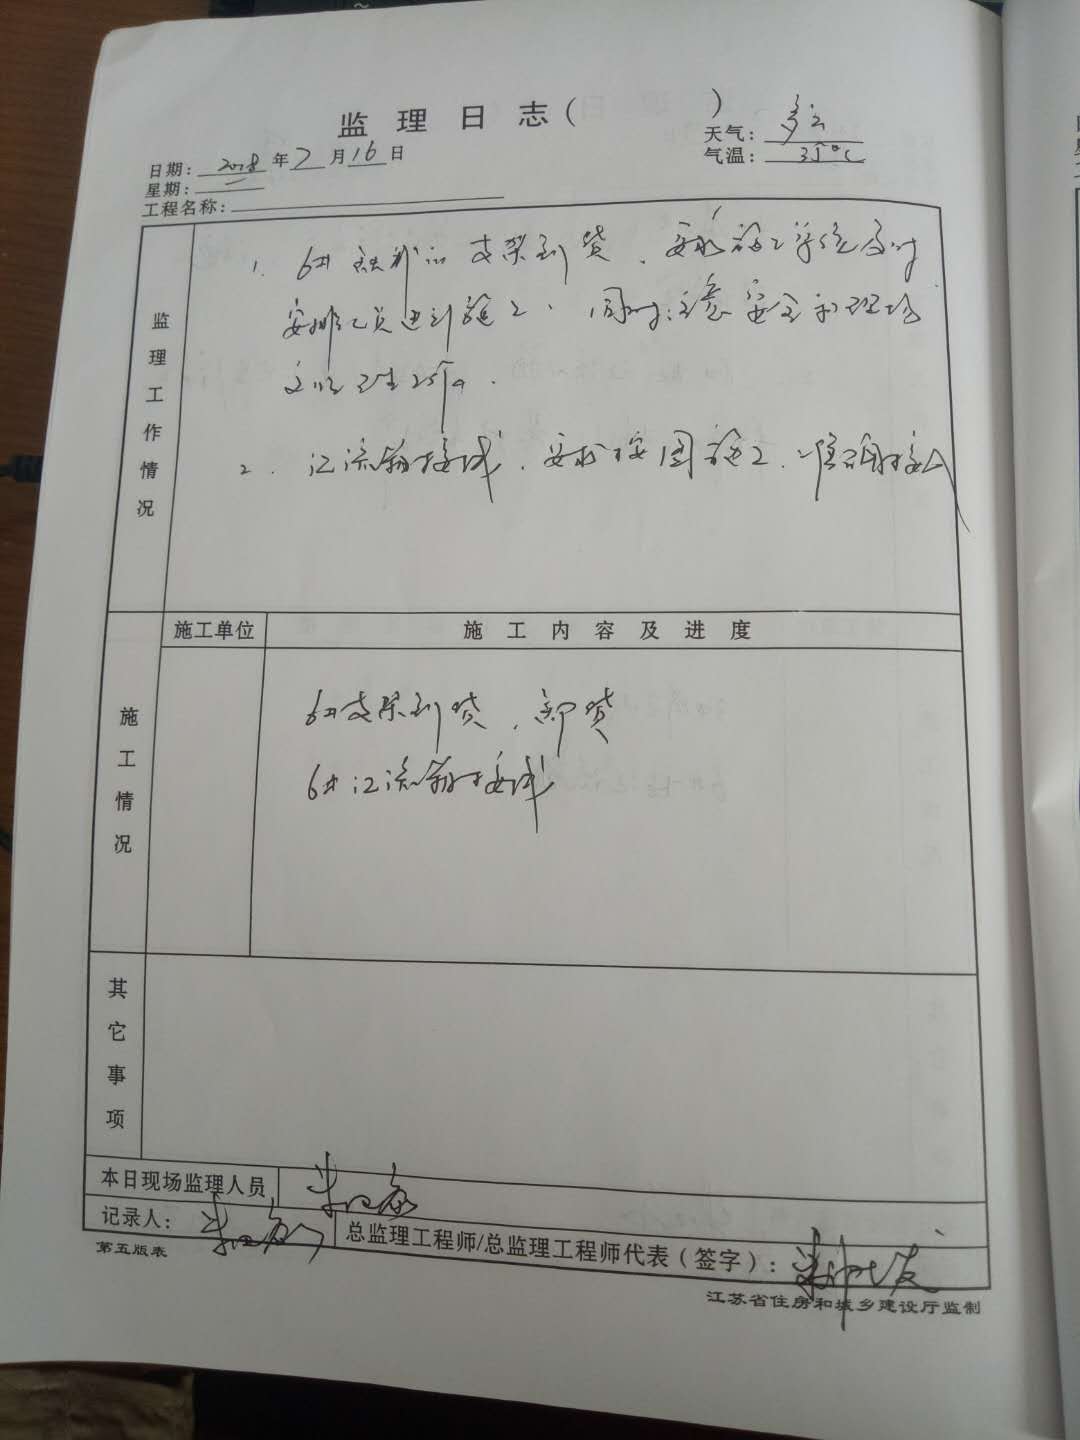 监理日志( )
天气: 多云
气温: 35℃
日期: 2018年7月16日
星期: 一
工程名称:
监理工作情况
1. 6# 支架到货、要求施工单位及时
安排人员进行施工、同时注意安全和现场
文明卫生
2. 汇流箱接线、要求按图施工、准确接入
施工单位
施工内容及进度
施工情况
6#支架到货、卸货
6#汇流箱接线
其它事项
本日现场监理人员
记录人:
总监理工程师/总监理工程师代表(签字):
第五版表
江苏省住房和城乡建设厅监制